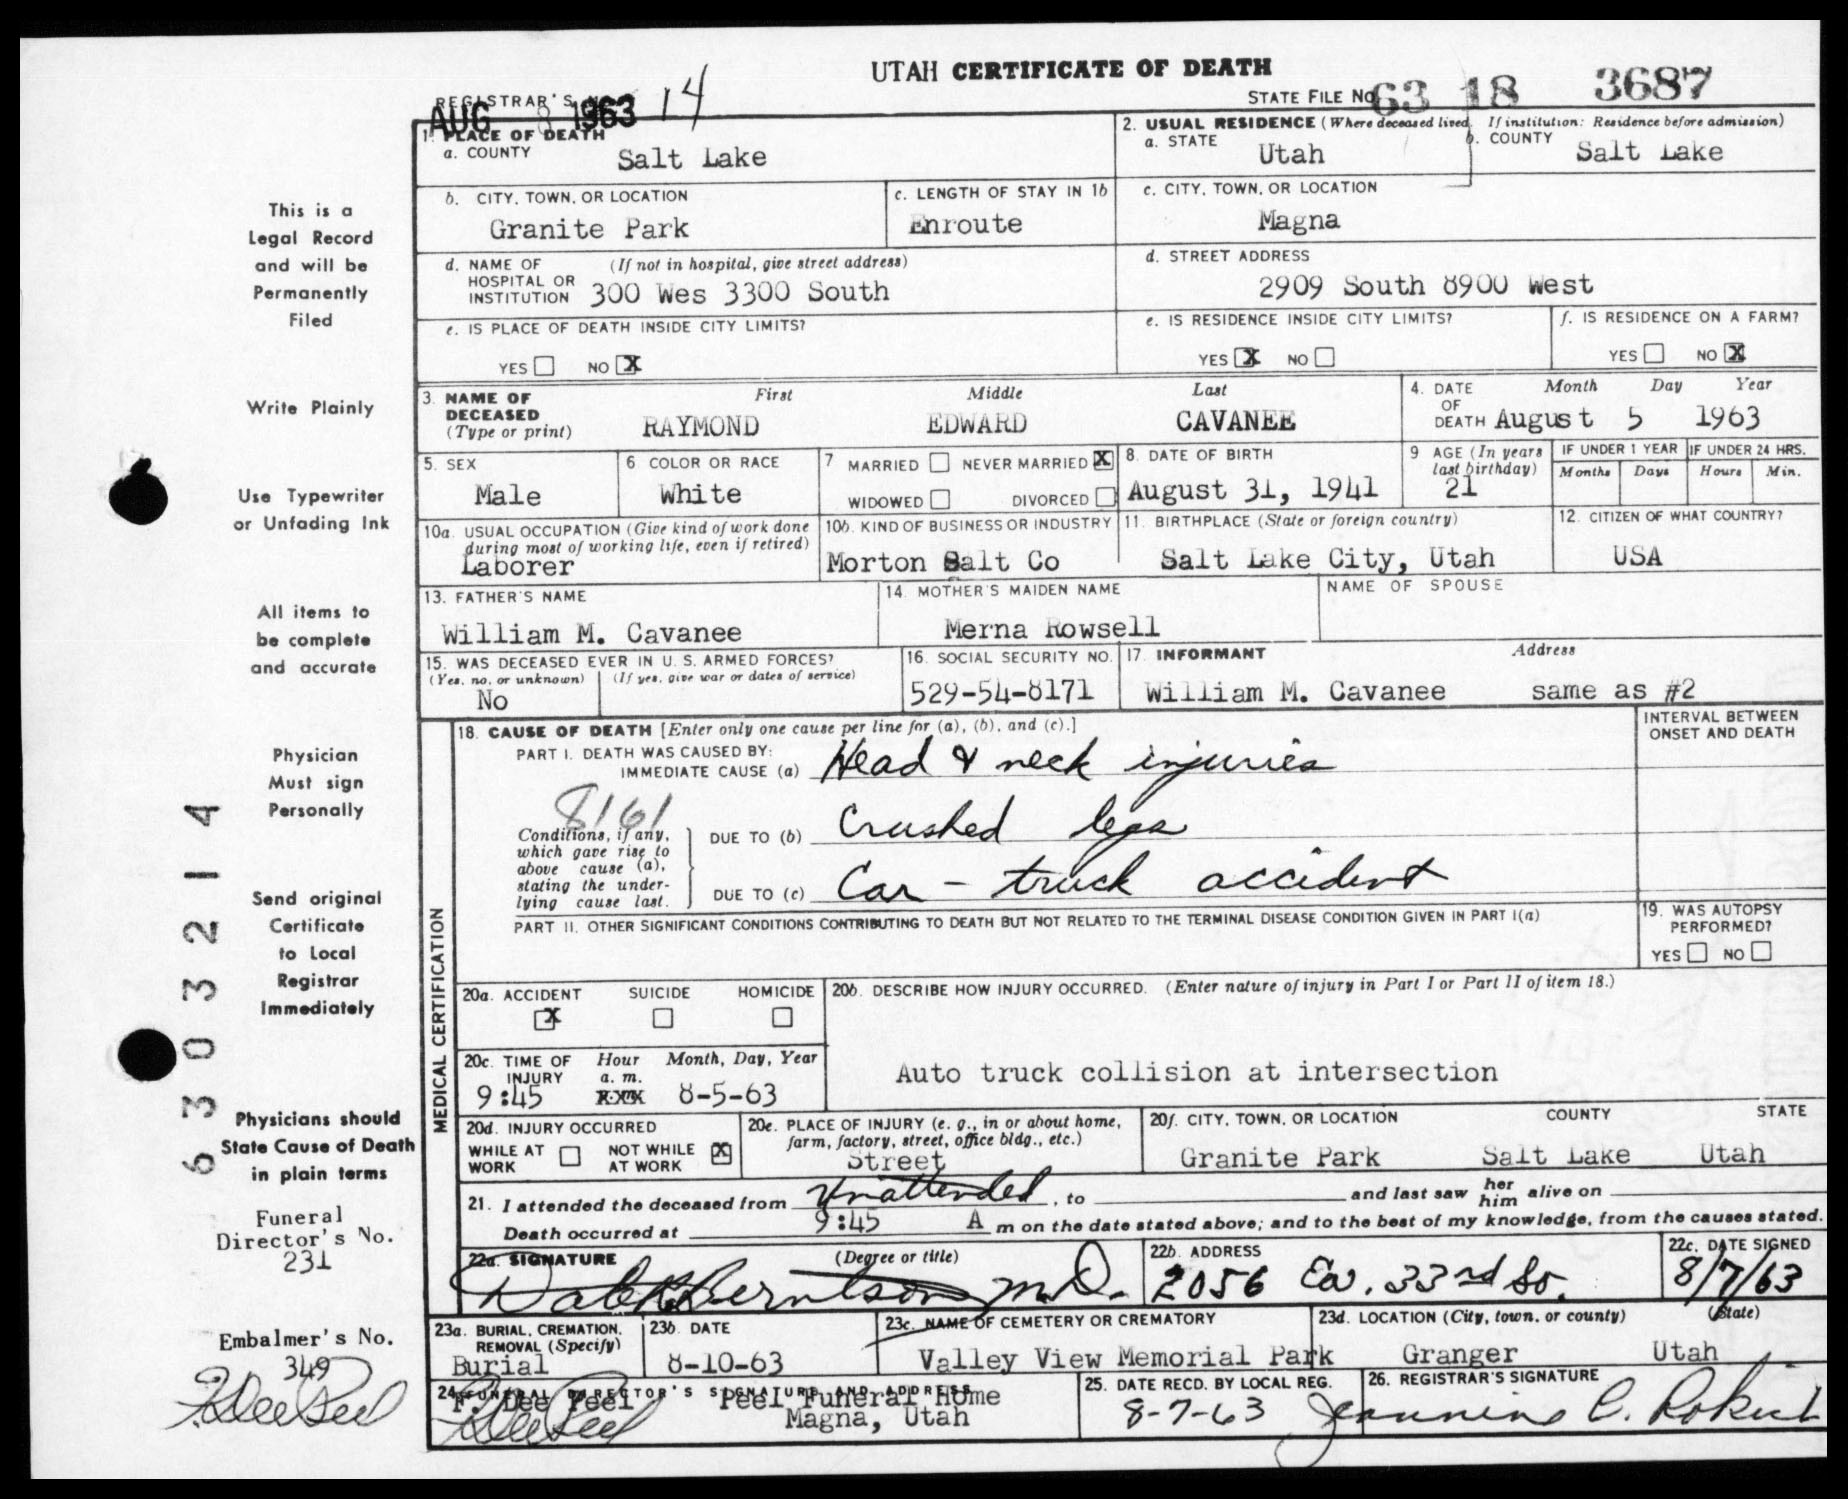 UTAH CERTIFICATE OF DEATH
REGISTRAR'S
AUG 8 1963 14
STATE FILE NO. 63 18 3687
1. PLACE OF DEATH
a. COUNTY Salt Lake
2. USUAL RESIDENCE (Where deceased lived. If institution: Residence before admission)
a. STATE Utah b. COUNTY Salt Lake
b. CITY, TOWN, OR LOCATION Granite Park
c. LENGTH OF STAY IN 1b Enroute
c. CITY, TOWN, OR LOCATION Magna
d. NAME OF HOSPITAL OR INSTITUTION (If not in hospital, give street address) 300 Wes 3300 South
d. STREET ADDRESS 2909 South 8900 West
e. IS PLACE OF DEATH INSIDE CITY LIMITS?
YES NO X
e. IS RESIDENCE INSIDE CITY LIMITS?
YES X NO
f. IS RESIDENCE ON A FARM?
YES NO X
3. NAME OF DECEASED (Type or print)
First Middle Last
RAYMOND EDWARD CAVANEE
4. DATE OF DEATH Month Day Year
August 5 1963
5. SEX Male
6 COLOR OR RACE White
7 MARRIED NEVER MARRIED X
WIDOWED DIVORCED
8. DATE OF BIRTH August 31, 1941
9 AGE (In years last birthday) 21
IF UNDER 1 YEAR Months Days
IF UNDER 24 HRS. Hours Min.
10a. USUAL OCCUPATION (Give kind of work done during most of working life, even if retired)
Laborer
10b. KIND OF BUSINESS OR INDUSTRY
Morton Salt Co
11. BIRTHPLACE (State or foreign country)
Salt Lake City, Utah
12. CITIZEN OF WHAT COUNTRY?
USA
13. FATHER'S NAME
William M. Cavanee
14. MOTHER'S MAIDEN NAME
Merna Rowsell
NAME OF SPOUSE
15. WAS DECEASED EVER IN U. S. ARMED FORCES?
(Yes, no, or unknown) (If yes, give war or dates of service)
No
16. SOCIAL SECURITY NO.
529-54-8171
17. INFORMANT Address
William M. Cavanee same as #2
18. CAUSE OF DEATH [Enter only one cause per line for (a), (b), and (c).]
INTERVAL BETWEEN ONSET AND DEATH
PART I. DEATH WAS CAUSED BY:
IMMEDIATE CAUSE (a) Head & neck injuries
8161
Conditions, if any, which gave rise to above cause (a), stating the under-lying cause last.
DUE TO (b) Crushed legs
DUE TO (c) Car - truck accident
PART II. OTHER SIGNIFICANT CONDITIONS CONTRIBUTING TO DEATH BUT NOT RELATED TO THE TERMINAL DISEASE CONDITION GIVEN IN PART I(a)
19. WAS AUTOPSY PERFORMED?
YES NO
MEDICAL CERTIFICATION
20a. ACCIDENT SUICIDE HOMICIDE
X
20b. DESCRIBE HOW INJURY OCCURRED. (Enter nature of injury in Part I or Part II of item 18.)
Auto truck collision at intersection
20c. TIME OF INJURY Hour Month, Day, Year
a. m.
9:45 8-5-63
20d. INJURY OCCURRED
WHILE AT WORK NOT WHILE AT WORK X
20e. PLACE OF INJURY (e. g., in or about home, farm, factory, street, office bldg., etc.)
Street
20f. CITY, TOWN, OR LOCATION COUNTY STATE
Granite Park Salt Lake Utah
21. I attended the deceased from Unattended, to and last saw her him alive on
Death occurred at 9:45 A m on the date stated above; and to the best of my knowledge, from the causes stated.
22a. SIGNATURE (Degree or title)
Dale H Berntson M.D.
22b. ADDRESS
2056 Ea. 33rd So.
22c. DATE SIGNED
8/7/63
23a. BURIAL, CREMATION, REMOVAL (Specify)
Burial
23b. DATE
8-10-63
23c. NAME OF CEMETERY OR CREMATORY
Valley View Memorial Park
23d. LOCATION (City, town, or county) (State)
Granger Utah
24. FUNERAL DIRECTOR'S SIGNATURE AND ADDRESS
F. Dee Peel Peel Funeral Home
Magna, Utah
F Dee Peel
25. DATE RECD. BY LOCAL REG.
8-7-63
26. REGISTRAR'S SIGNATURE
This is a
Legal Record
and will be
Permanently
Filed
Write Plainly
Use Typewriter
or Unfading Ink
All items to
be complete
and accurate
Physician
Must sign
Personally
Send original
Certificate
to Local
Registrar
Immediately
Physicians should
State Cause of Death
in plain terms
Funeral
Director's No.
231
Embalmer's No.
349
F Dee Peel
6303214